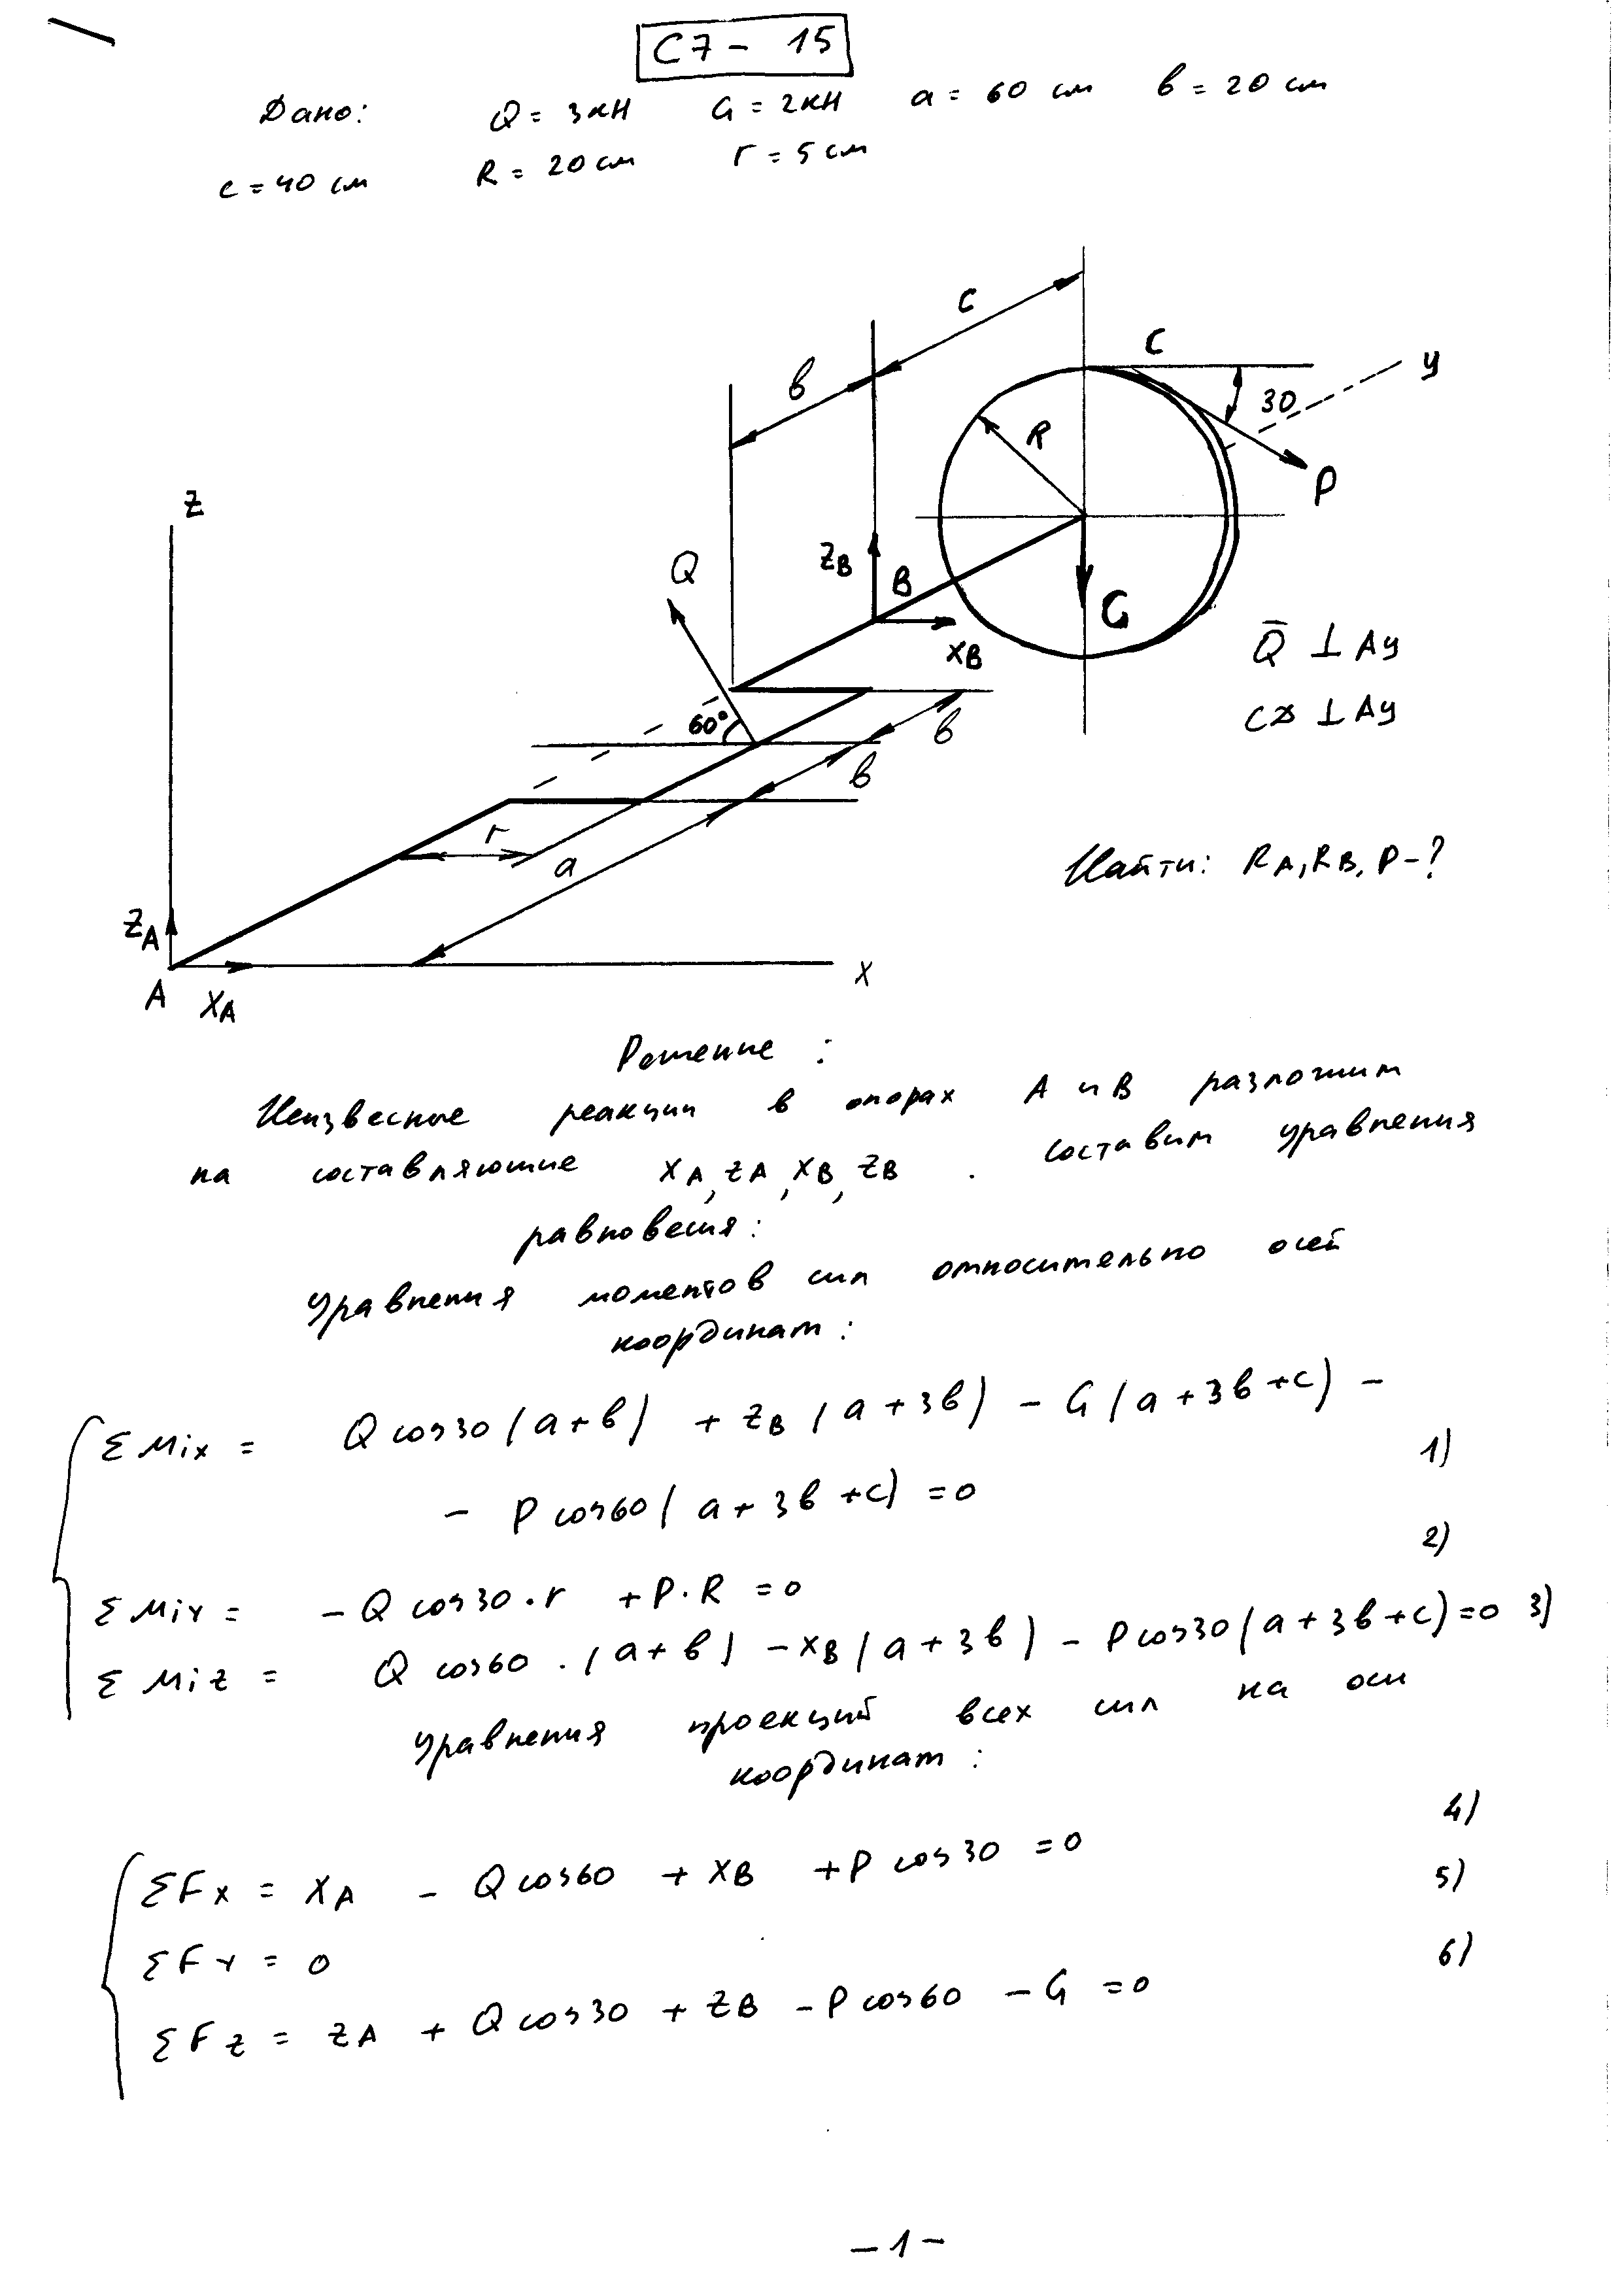 С7 - 15
Дано: Q = 3кН G = 2кН a = 60 см в = 20 см
c = 40 см R = 20 см r = 5 см
c
в
C
y
30
R
P
z
Q
zB
B
xB
G
Q̅ ⊥ Ay
⊥ Ay
60°
в
в
r
a
Найти: RA, RB, P-?
zA
A
XA
x
Решение :
Неизвесные реакции в опорах A и B разложим
на составляющие XA, zA, XB, zB . составим уравнения
равновесия:
Уравнения моментов сил относительно осей
координат:
ΣMix = Q cos30 (a+в) + zB (a+3в) - G (a+3в+c) -
- P cos60 (a+3в+c) = 0 1)
ΣMiY = - Q cos30·r + P·R = 0 2)
ΣMiz = Q cos60 · (a+в) - XB (a+3в) - P cos30 (a+3в+c) = 0 3)
Уравнения проекций всех сил на оси
координат:
ΣFx = XA - Q cos60 + XB + P cos30 = 0 4)
ΣFY = 0 5)
ΣFz = zA + Q cos30 + zB - P cos60 - G = 0 6)
- 1 -